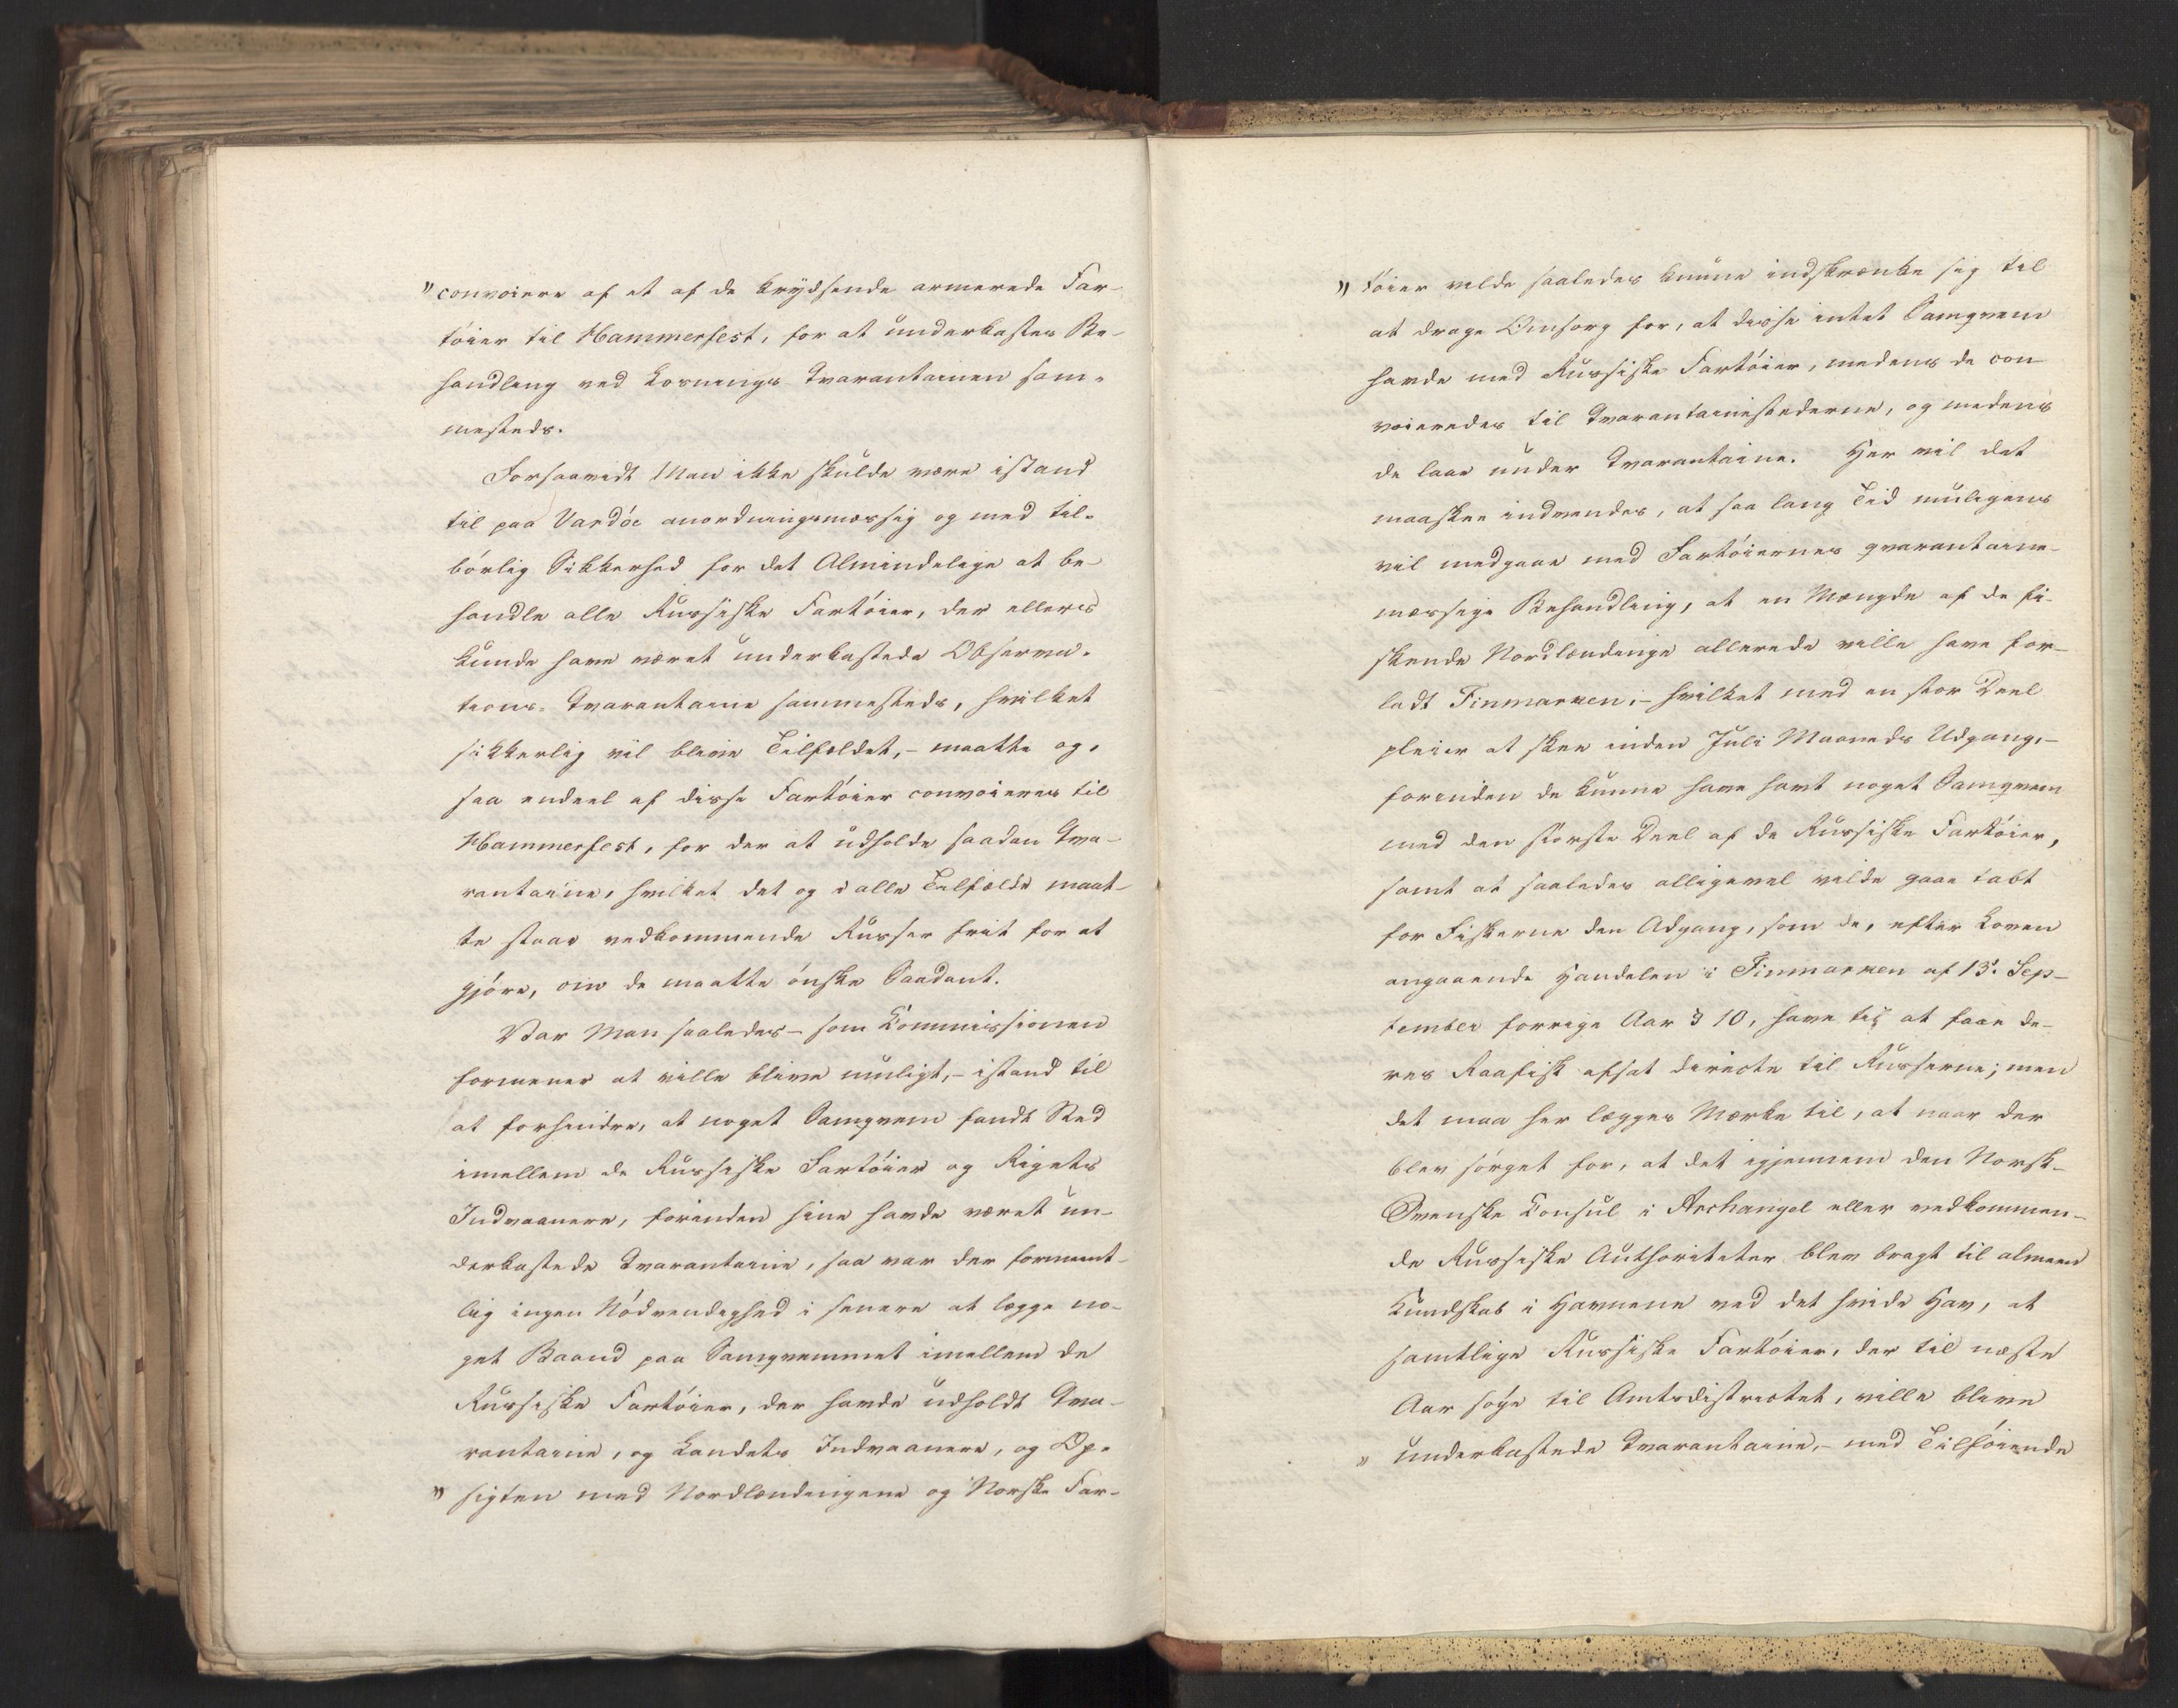 "convoiere af et af de krydsende armerede Far-
tøier til Hammerfest, for at underkastes Be-
handling ved Losnings-Qvarantainen sam-
mesteds.
Forsaavidt Man ikke skulde være istand
til paa Vardöe anordningsmæssig og med til-
børlig Sikkerhed for det Almindelige at be-
handle alle Russiske Fartøier, der ellers
kunde have været underkastede Observa-
tions-Qvarantaine sammesteds, hvilket
sikkerlig vil blive Tilfældet, – maatte og-
saa endeel af disse Fartøier convoieres til
Hammerfest, for der at udholde saadan Qva-
rantaine, hvilket det og i alle Tilfælde maat-
te staae vedkommende Russer frit for at
gjøre, om de maatte ønske Saadant.
Var Man saaledes – som Commissionen
formener at ville blive muligt, – istand til
at forhindre, at noget Samqvem fandt Sted
imellem de Russiske Fartøier og Rigets
Indvaanere, forinden hine havde været un-
derkastede Qvarantaine, saa var der forment-
lig ingen Nødvendighed i senere at lægge no-
get Baand paa Samqvemmet imellem de
Russiske Fartøier, der havde udholdt Qva-
rantaine, og Landets Indvaanere, og Op-
" sigten med Nordlændingene og Norske Far-
" tøier vilde saaledes kunne indskrænke sig til
at drage Omsorg for, at disse intet Samqvem
havde med Russiske Fartøier, medens de con-
voieredes til Qvarantainestederne, og medens
de laae under Qvarantaine. Her vil det
maaskee indvendes, at saa lang Tid muligens
vil medgaae med Fartøiernes qvarantaine-
mæssige Behandling, at en Mængde af de fi-
skende Nordlændinge allerede ville have for-
ladt Finmarken; – hvilket med en stor Deel
pleier at skee inden Juli Maaneds Udgang, –
forinden de kunne have havt noget Samqvem
med den største Deel af de Russiske Fartøier,
samt at saaledes alligevel vilde gaae tabt
for Fiskerne den Adgang, som de, efter Loven
angaaende Handelen i Finmarken af 13. Sep-
tember forrige Aar § 10, have til at faae de-
res Raafisk afsat directe til Russerne; men
det maa her lægges Mærke til, at naar der
blev sørget for, at det igjennem den Norsk-
Svenske Consul i Archangel eller vedkommen-
de Russiske Authoriteter blev bragt til almeen
Kundskab i Havnene ved det hvide Hav, at
samtlige Russiske Fartøier, der til næste
Aar søge til Amtsdistrictet, ville blive
" underkastede Qvarantaine, – med Tilføiende